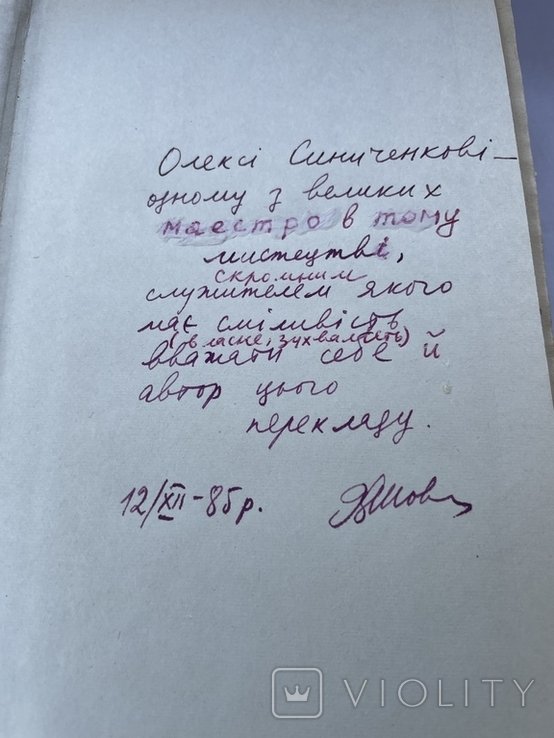 Олексі Синиченкові –
одному з великих
маестро в тому
мистецтві,
скромним
служителем якого
має сміливість
(власне, зухвалість)
вважати себе й
автор цього
перекладу.
12/XII-85р.
VIOLITY